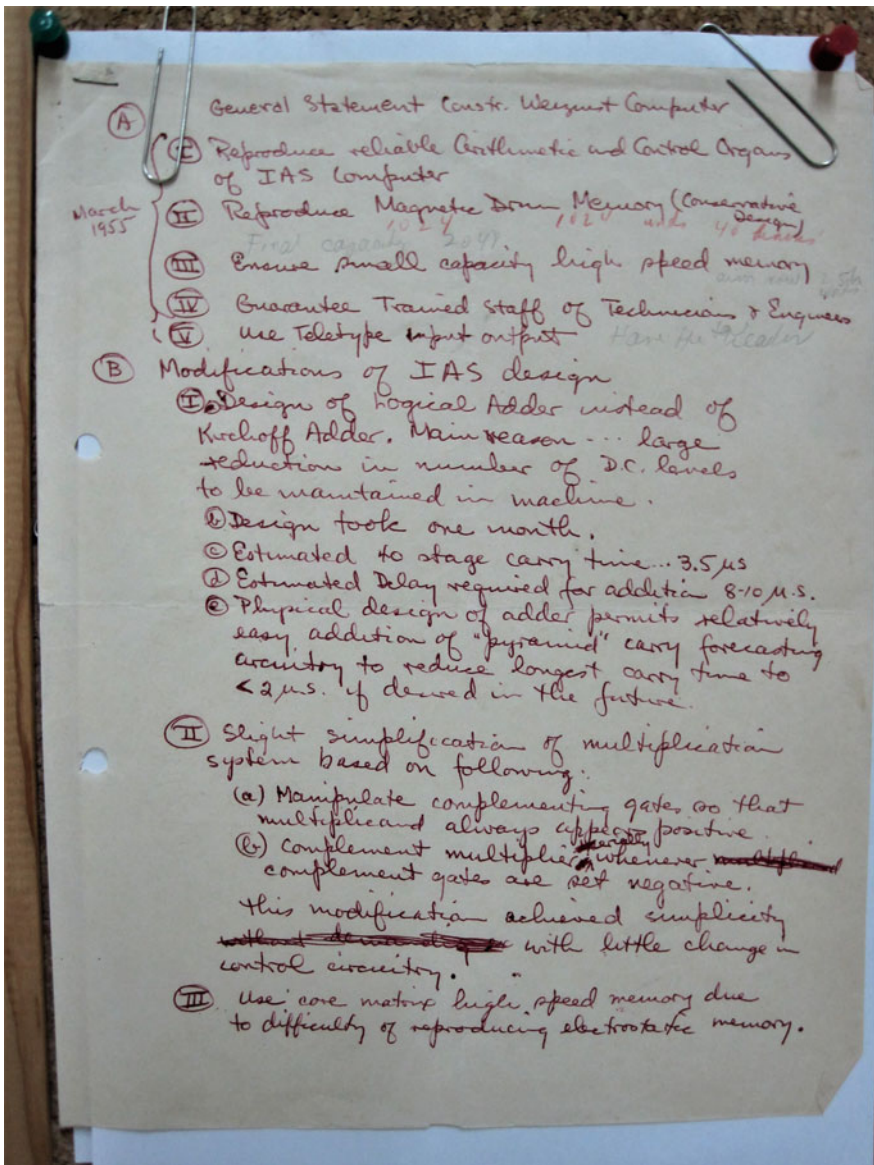 General Statement Constr. Weizmst Computer
Ⓐ
Ⓘ Reproduce reliable Arithmetic and Control Organs
of IAS Computer
March
1955
Ⅱ Reproduce Magnetic Drum Memory (Conservative
Design)
1024 1024 40
Final capacity 2049
Ⅲ Ensure small capacity high speed memory
Ⅳ Guarantee Trained Staff of Technicians & Engineers
Ⅴ Use Teletype input output
Ⓑ Modifications of IAS design
Ⅰ. Design of Logical Adder instead of
Kirchoff Adder. Main reason ... large
reduction in number of D.C. levels
to be maintained in machine.
ⓑ Design took one month.
ⓒ Estimated 40 stage carry time... 3.5 µs
ⓓ Estimated Delay required for addition 8-10 µ.s.
ⓔ Physical design of adder permits relatively
easy addition of "pyramid" carry forecasting
circuitry to reduce longest carry time to
< 2 µ.s. if desired in the future.
Ⅱ Slight simplification of multiplication
system based on following:
(a) Manipulate complementing gates so that
multiplicand always appears positive.
(b) complement multiplier serially whenever
complement gates are set negative.
This modification achieved simplicity
with little change in
control circuitry.
Ⅲ Use core matrix high speed memory due
to difficulty of reproducing electrostatic memory.